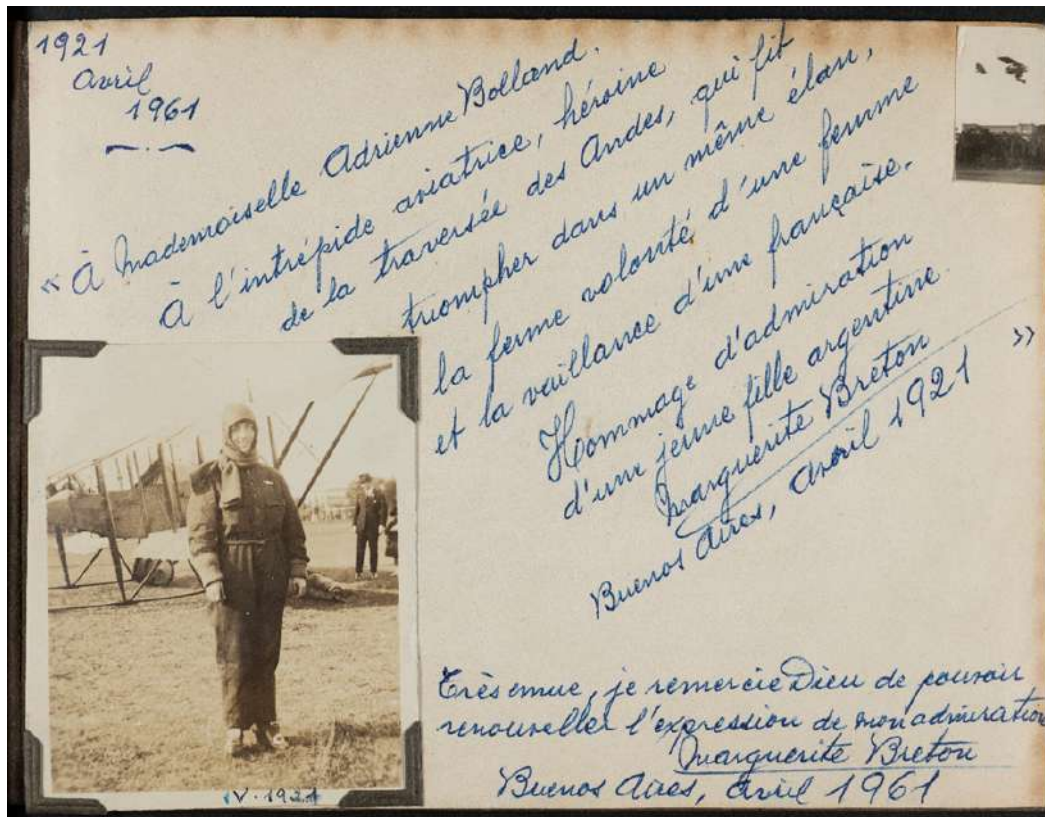 1921
avril
1961
« À Mademoiselle Adrienne Bolland.
À l'intrépide aviatrice, héroine
de la traversée des Andes, qui fit
triompher dans un même élan,
la ferme volonté d'une femme
et la vaillance d'une française.
Hommage d'admiration
d'une jeune fille argentine
Marguerite Breton »
Buenos Aires, avril 1921
Très emue, je remercie Dieu de pouvoir
renouveller l'expression de mon admiration
Marguerite Breton
Buenos Aires, avril 1961
IV. 1921